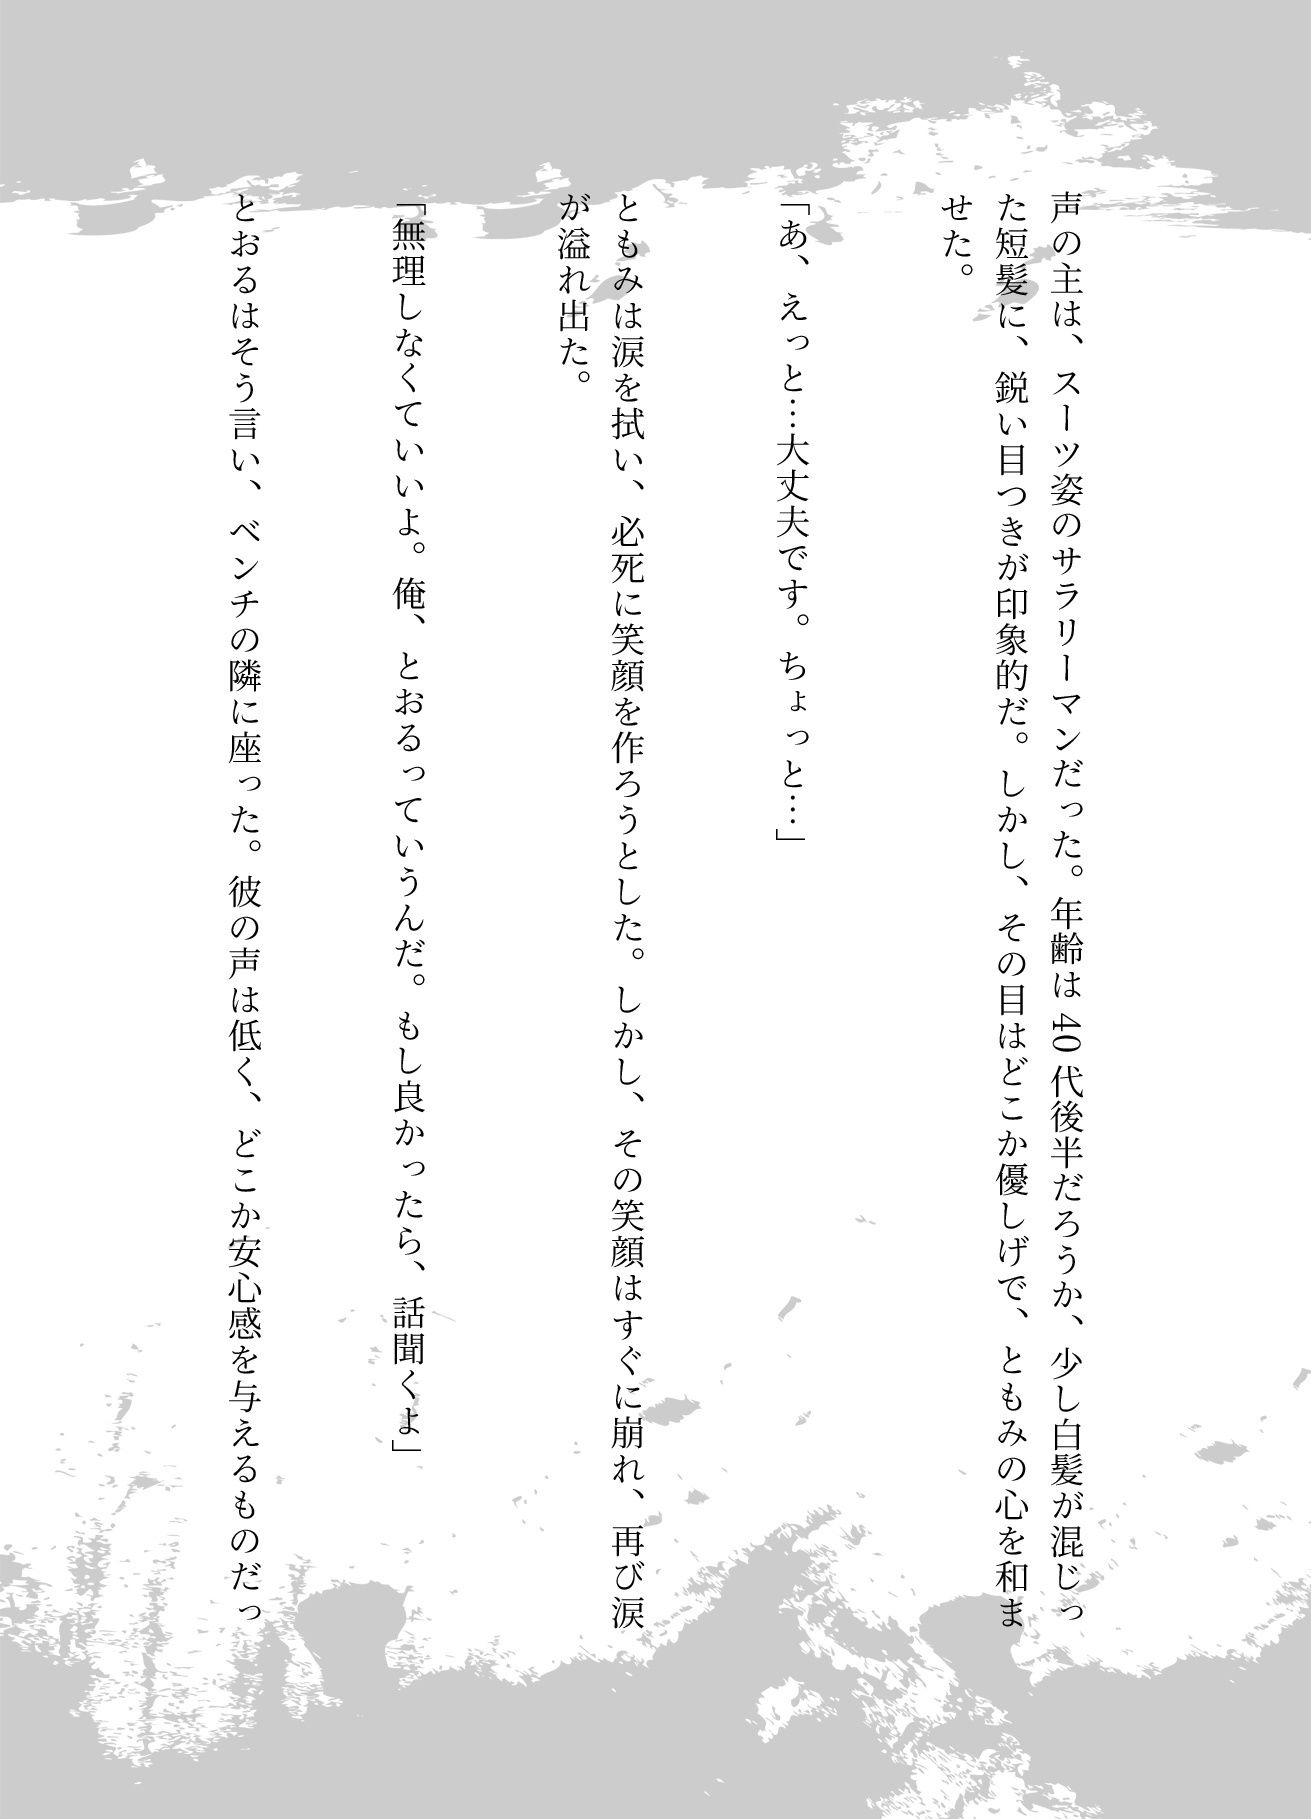 声の主は、スーツ姿のサラリーマンだった。年齢は 40 代後半だろうか、少し白髪が混じっ
た短髪に、鋭い目つきが印象的だ。しかし、その目はどこか優しげで、ともみの心を和ま
せた。
「あ、えっと…大丈夫です。ちょっと…」
ともみは涙を拭い、必死に笑顔を作ろうとした。しかし、その笑顔はすぐに崩れ、再び涙
が溢れ出た。
「無理しなくていいよ。俺、とおるっていうんだ。もし良かったら、話聞くよ」
とおるはそう言い、ベンチの隣に座った。彼の声は低く、どこか安心感を与えるものだっ